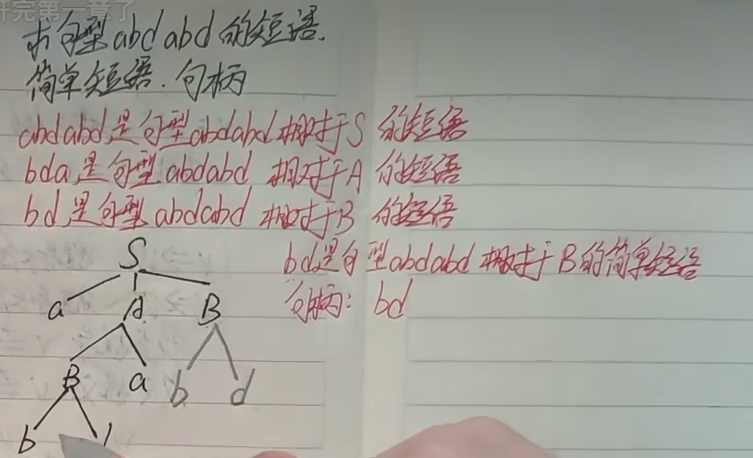 开完第一章了
求句型abdabd的短语.
简单短语.句柄
abdabd是句型abdabd相对于S的短语
bda是句型abdabd相对于A的短语
bd是句型abdabd相对于B的短语
bd是句型abdabd相对于B的简单短语
句柄: bd
S
a A B
B a b d
b